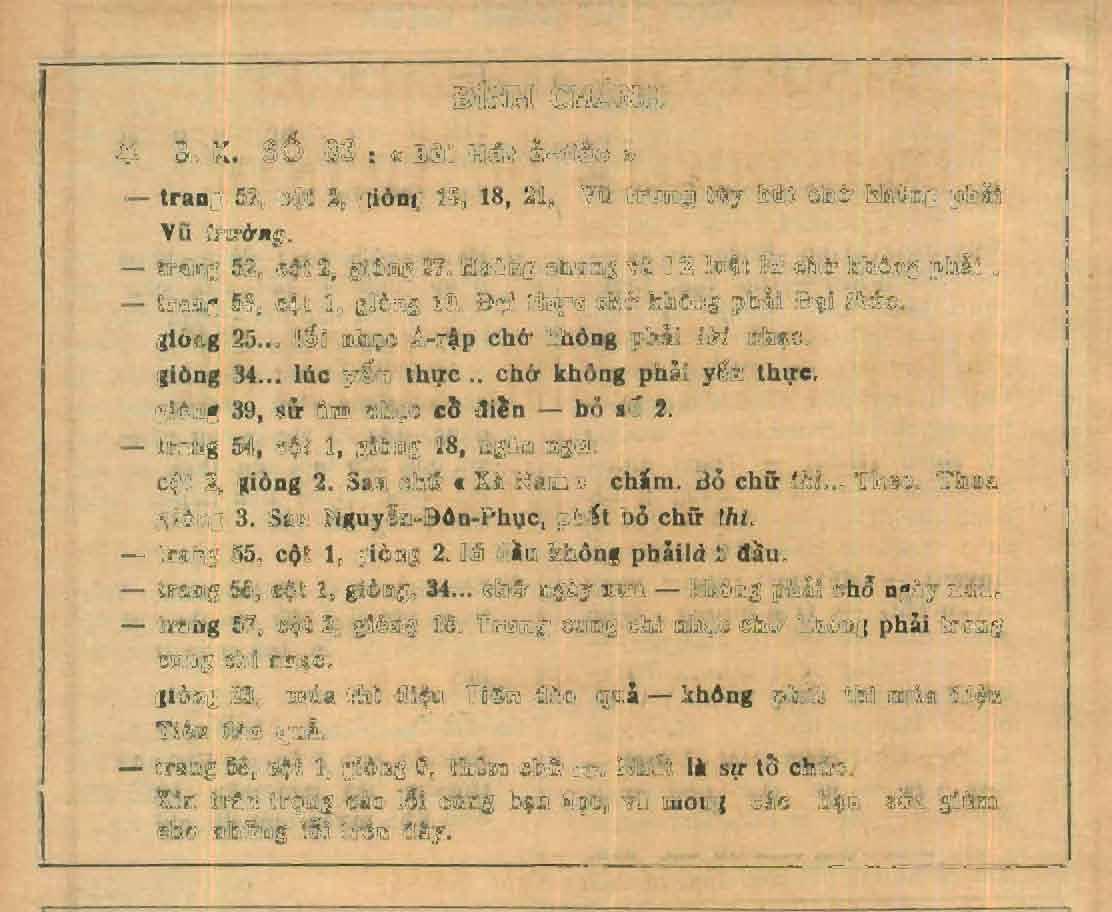 ĐÍNH CHÁNH
B. K. SỐ : «
— trang 52, cột 2, giòng 15, 18, 21, Vũ trung tùy bút chớ không phải
Vũ trường.
— trang 52, cột 2, giòng 27. Hoàng chung và 12 luật lữ chớ không phải .
— trang 53, cột 1, giòng 10. Đại thực chớ không phải Đại thức.
giòng 25... lối nhạc Á-rập chớ không phải nhạc.
giòng 34... lúc yến thực .. chớ không phải yến thực.
giòng 39, sử âm nhạc cổ điển — bỏ số 2.
— trang 54, cột 1, giòng 18, ngân nga.
cột 2, giòng 2. Sau chữ « Xà Nam » chấm. Bỏ chữ thì... Theo.
giòng 3. Sau Nguyễn-Đôn-Phục, phết bỏ chữ thì.
— trang 55, cột 1, giòng 2. đầu không phải là 2 đầu.
— trang 56, cột 1, giòng, 34... chớ ngày xưa — không phải chỗ ngày xưa.
— trang 57, cột 2, giòng 18. Trung cung chi nhạc chớ không phải trong
cung chi nhạc.
giòng 23, múa thì điệu Tiên đào quả — không phải thì múa điệu
Tiên đào quả.
— trang 58, cột 1, giòng 6, thêm chữ Nhất là sự tổ chức.
Xin trân trọng cáo lỗi cùng bạn đọc, và mong các bạn sửa giùm
cho những lỗi trên đây.